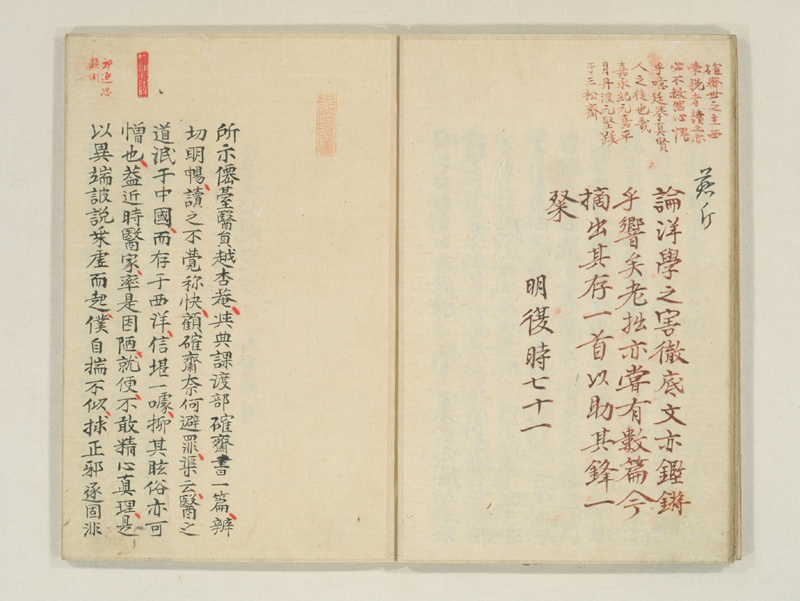 確齋世之主西
説者讀之亦
必不敢怒心愧
人之徒也哉
嘉永紀元嘉平
月丹波元堅跋
于三松齋
論洋學之害徹底文亦鏗鏘
乎響矣老拙亦嘗有數篇今
摘出其存一首以助其鋒一
粲
明復時七十一
所示僊臺醫員越杏菴與典課渡部確齋書一篇辨
切明暢讀之不覺称快顧確齋奈何避罪渠云醫之
道泯于中國而存于西洋信堪一噱抑其眩俗亦可
憎也蓋近時醫家率是因陋就便不敢精心真理是
以異端詖説乗虛而起僕自揣不似捄正邪逐固非
邪逐恐
顛倒